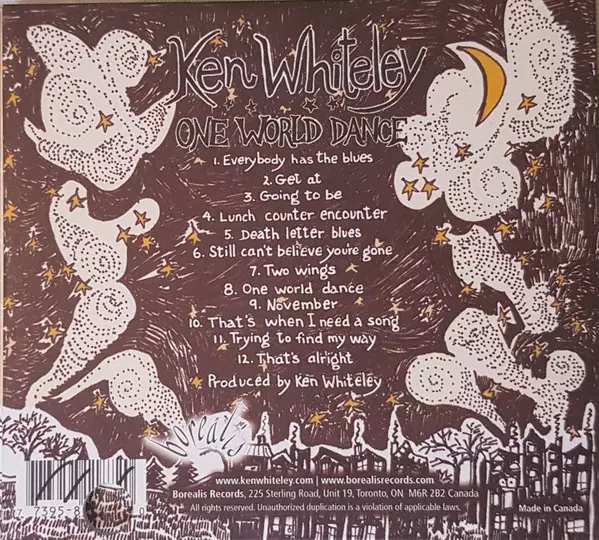 Ken Whiteley
ONE WORLD DANCE
1. Everybody has the blues
2. Get at
3. Going to be
4. Lunch counter encounter
5. Death letter blues
6. Still can't believe you're gone
7. Two wings
8. One world dance
9. November
10. That's when I need a song
11. Trying to find my way
12. That's alright
Produced by Ken Whiteley
Borealis
www.kenwhiteley.com | www.borealisrecords.com
Borealis Records, 225 Sterling Road, Unit 19, Toronto, ON M6R 2B2 Canada
All rights reserved. Unauthorized duplication is a violation of applicable laws.
Made in Canada